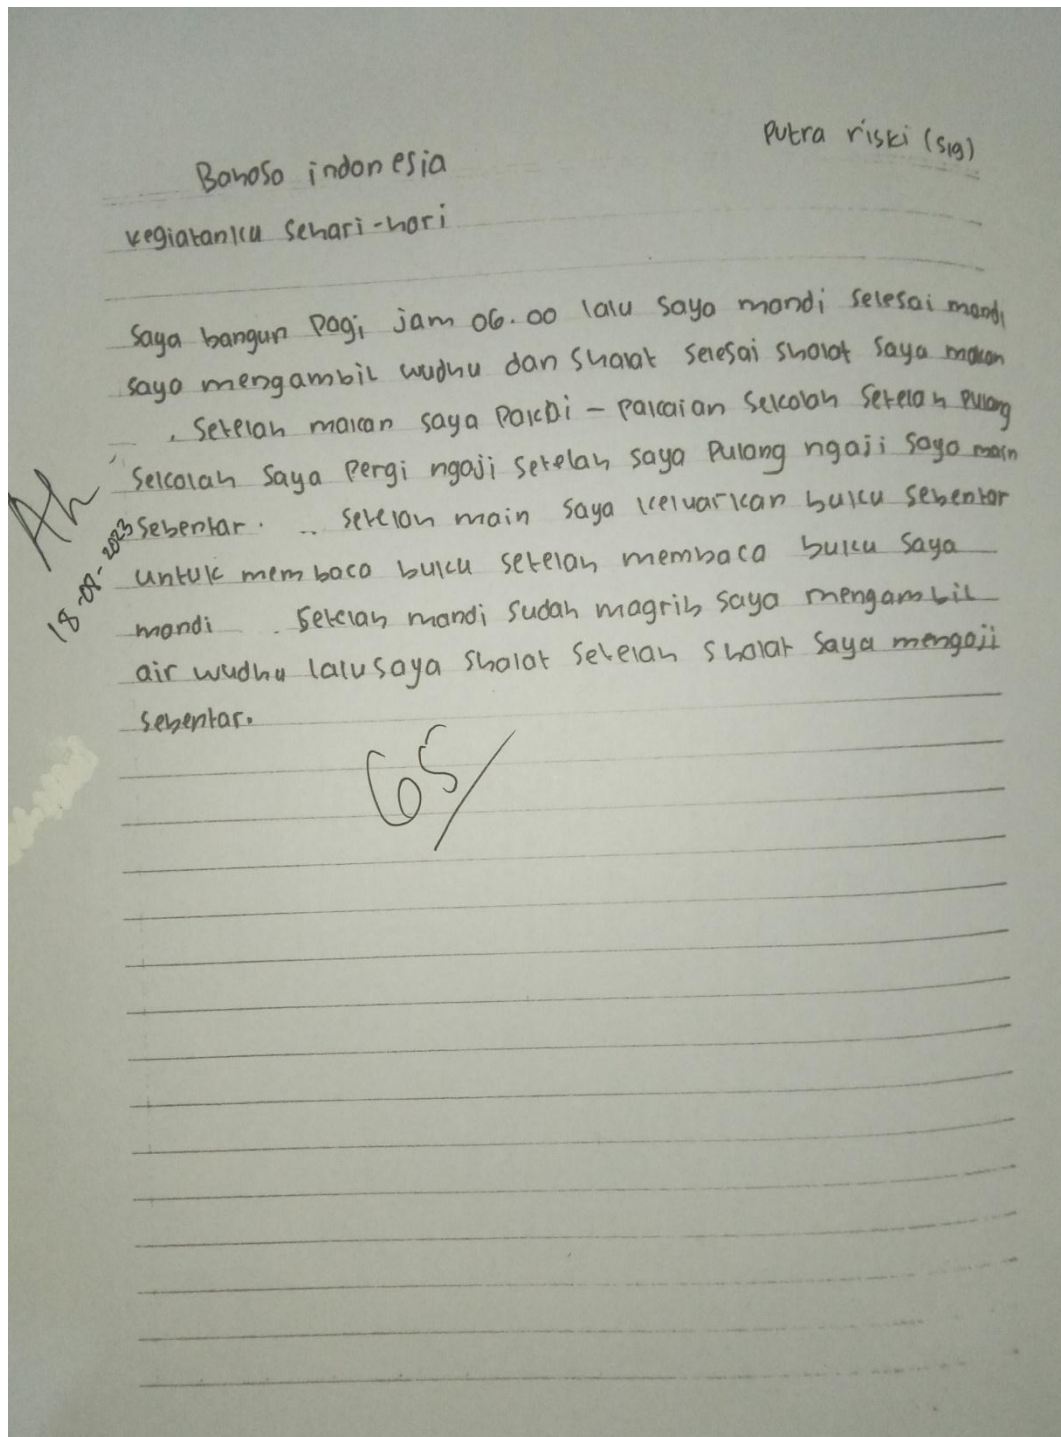 Putra riski (S19)
Bahasa indonesia
kegiatanku sehari-hari
Saya bangun Pagi jam 06.00 lalu saya mandi selesai mandi
saya mengambil wudhu dan shalat selesai sholat saya makan
. Setelah makan saya Pakai - Pakaian Sekolah Setelah Pulang
Sekolah Saya Pergi ngaji setelah saya Pulang ngaji saya main
Sebentar. .. setelah main saya keluarkan buku sebentar
untuk membaca buku setelah membaca buku saya
mandi . Setelah mandi sudah magrib saya mengambil
air wudhu lalu saya Shalat Setelah shalat Saya mengaji
sebentar.
18-08-2023
65/